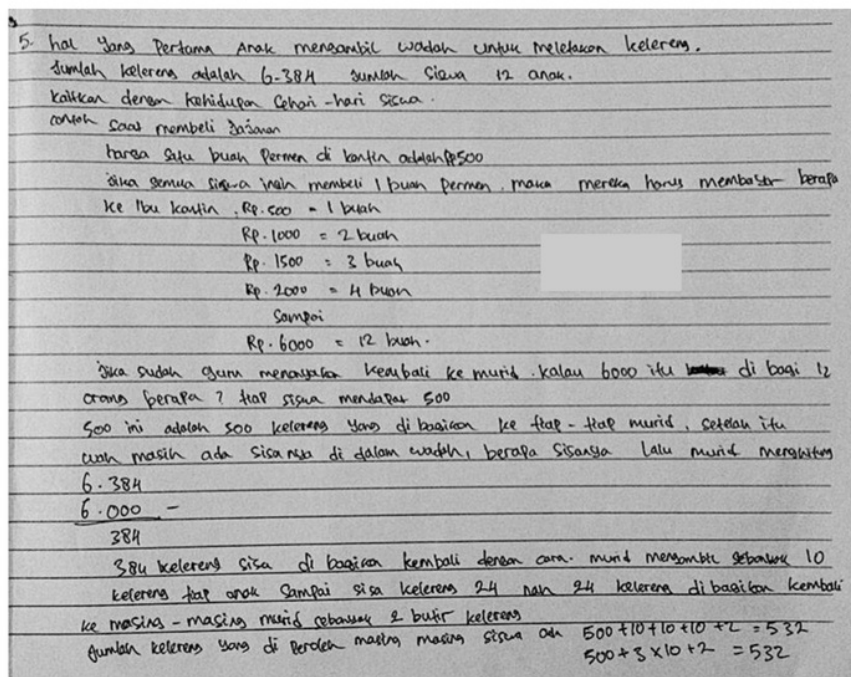 5. hal yang Pertama Anak mengambil wadah untuk meletakan kelereng.
Jumlah kelereng adalah 6.384 Jumlah siswa 12 anak.
Kaitkan dengan kehidupan sehari-hari siswa.
contoh saat membeli jajanan
harga satu buah Permen di kantin adalah Rp500
jika semua siswa ingin membeli 1 buah Permen, maka mereka harus membayar berapa
ke Ibu kantin, Rp.500 = 1 buah
Rp.1000 = 2 buah
Rp. 1500 = 3 buah
Rp. 2000 = 4 buah
Sampai
Rp. 6000 = 12 buah.
jika sudah guru menanyakan kembali ke murid. kalau 6000 itu di bagi 12
orang berapa? tiap siswa mendapat 500
500 ini adalah 500 kelereng yang di bagikan ke tiap-tiap murid, setelah itu
wah masih ada sisanya di dalam wadah, berapa sisanya Lalu murid menghitung
6.384
6.000 -
384
384 kelereng sisa di bagikan kembali dengan cara. murid mengambil sebanyak 10
kelereng tiap anak Sampai sisa kelereng 24 nah 24 kelereng dibagikan kembali
ke masing-masing murid sebanyak 2 butir kelereng
Jumlah kelereng yang di Peroleh masing masing siswa 500+10+10+10+2 = 532
500+3×10+2 = 532